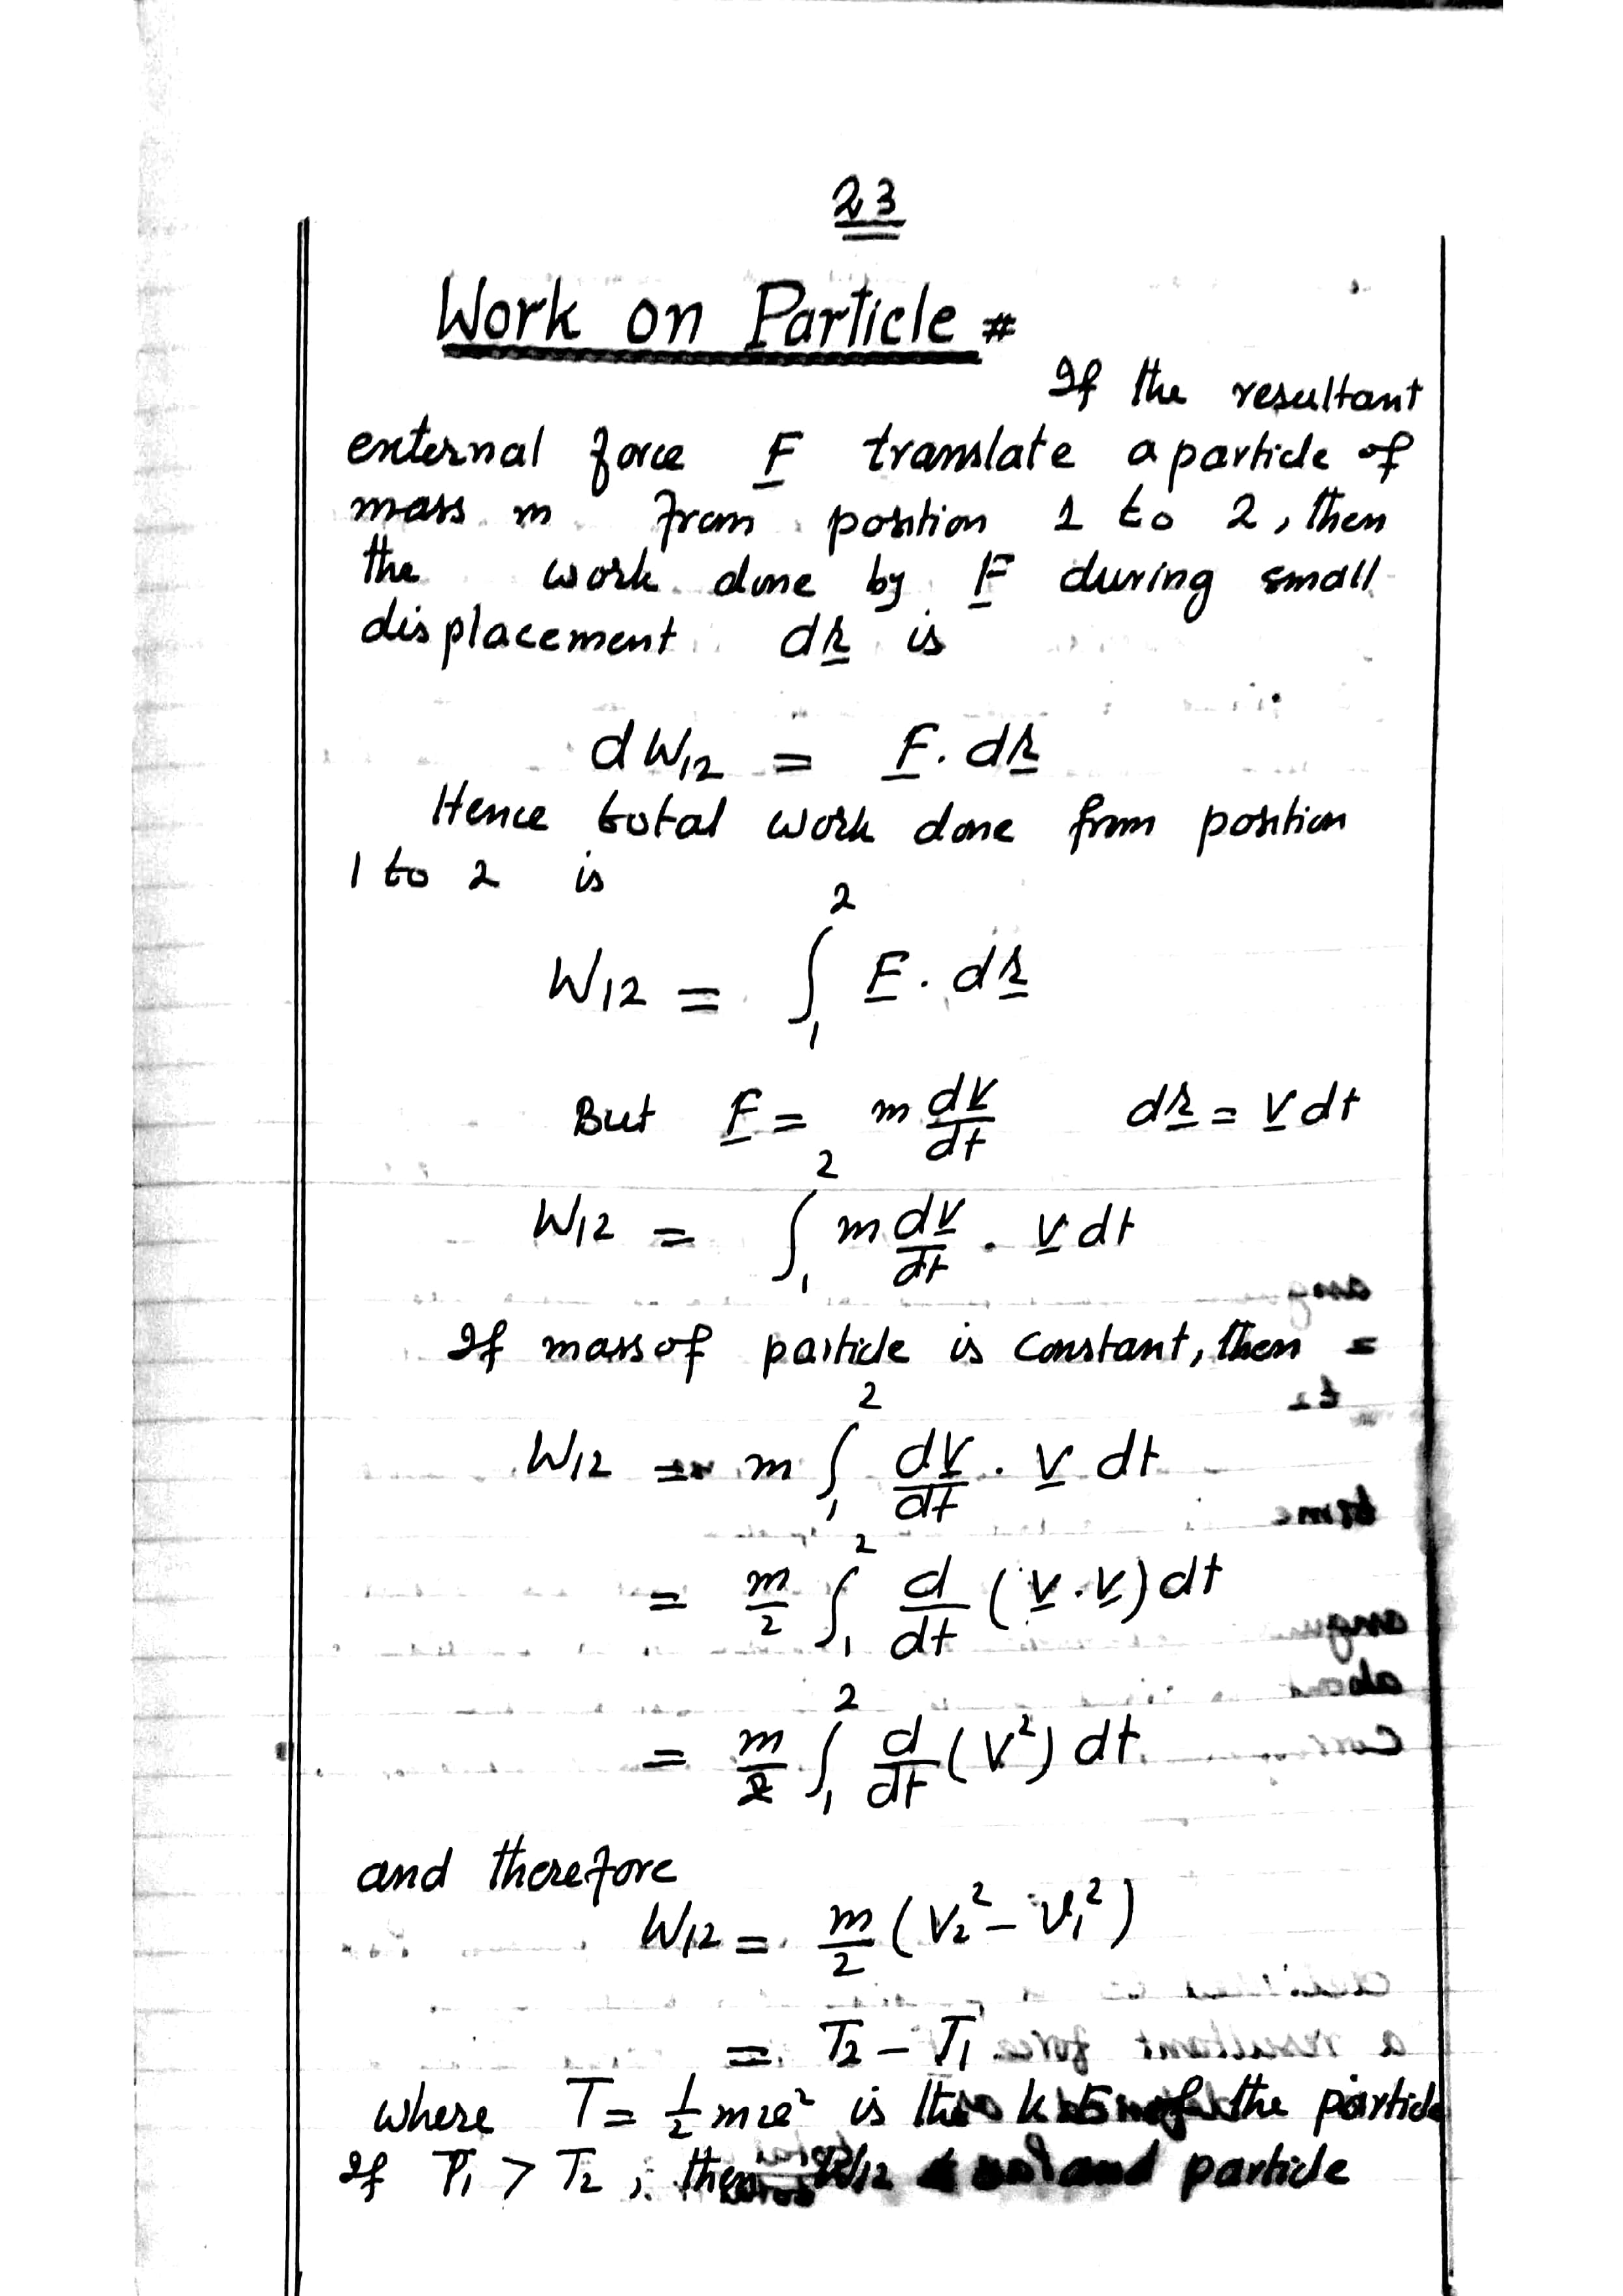 23
Work on Particle #
If the resultant
external force F translate a particle of
mass m from position 1 to 2, then
the work done by F during small
displacement dr is
dW12 = F. dr
Hence total work done from position
1 to 2 is
W12 = ∫₁² F. dr
But F = m dV/dt dr = V dt
W12 = ∫₁² m dV/dt . V dt
If mass of particle is constant, then
W12 = m ∫₁² dV/dt . V dt
= m/2 ∫₁² d/dt (V.V) dt
= m/2 ∫₁² d/dt (V²) dt
and therefore
W12 = m/2 (V₂² - V₁²)
= T2 - T1
where T = 1/2 mv² is the k E of the particle
If T1 > T2, then W12 and particle